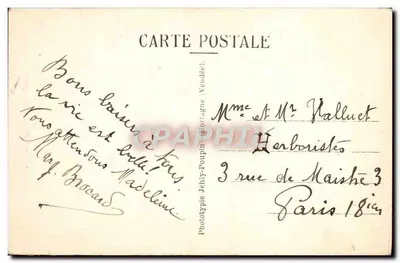 CARTE POSTALE
Bons baisers à tous.
la vie est belle!
Nous attendons Madeleine
Brocard
Phototype Jehly-Poupin, Mortagne (Vendée).
Mme et Mr Halluet
Herboristes
3 rue de Maistre 3
Paris 18ien